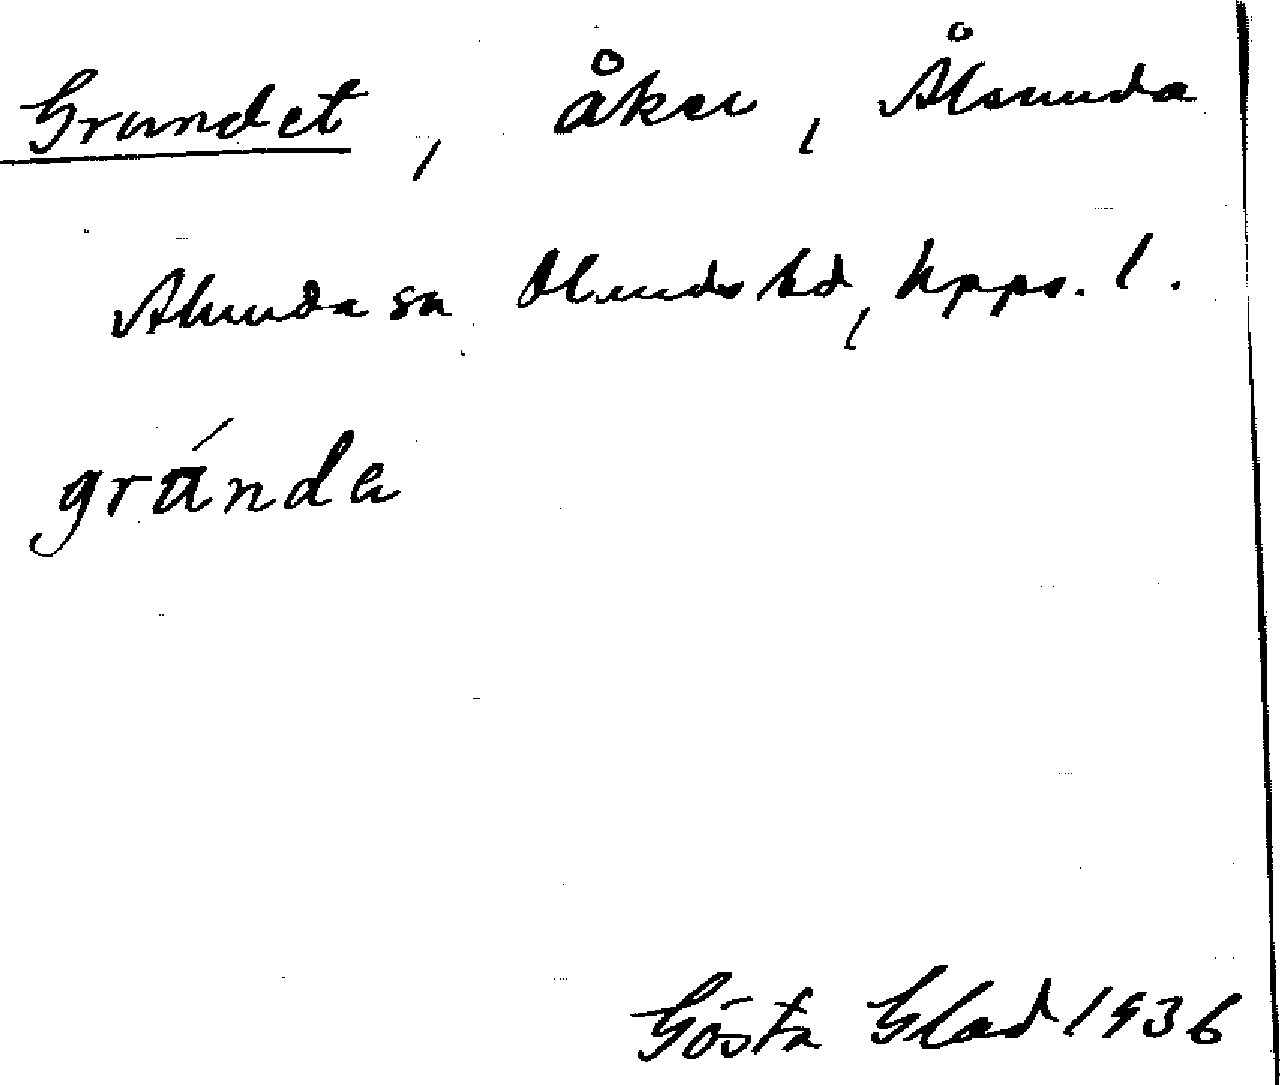 Grandet, åker, Ålsunda
Alunda sn Olands hd, Upps. l.
gránda
Gösta Glad 1936